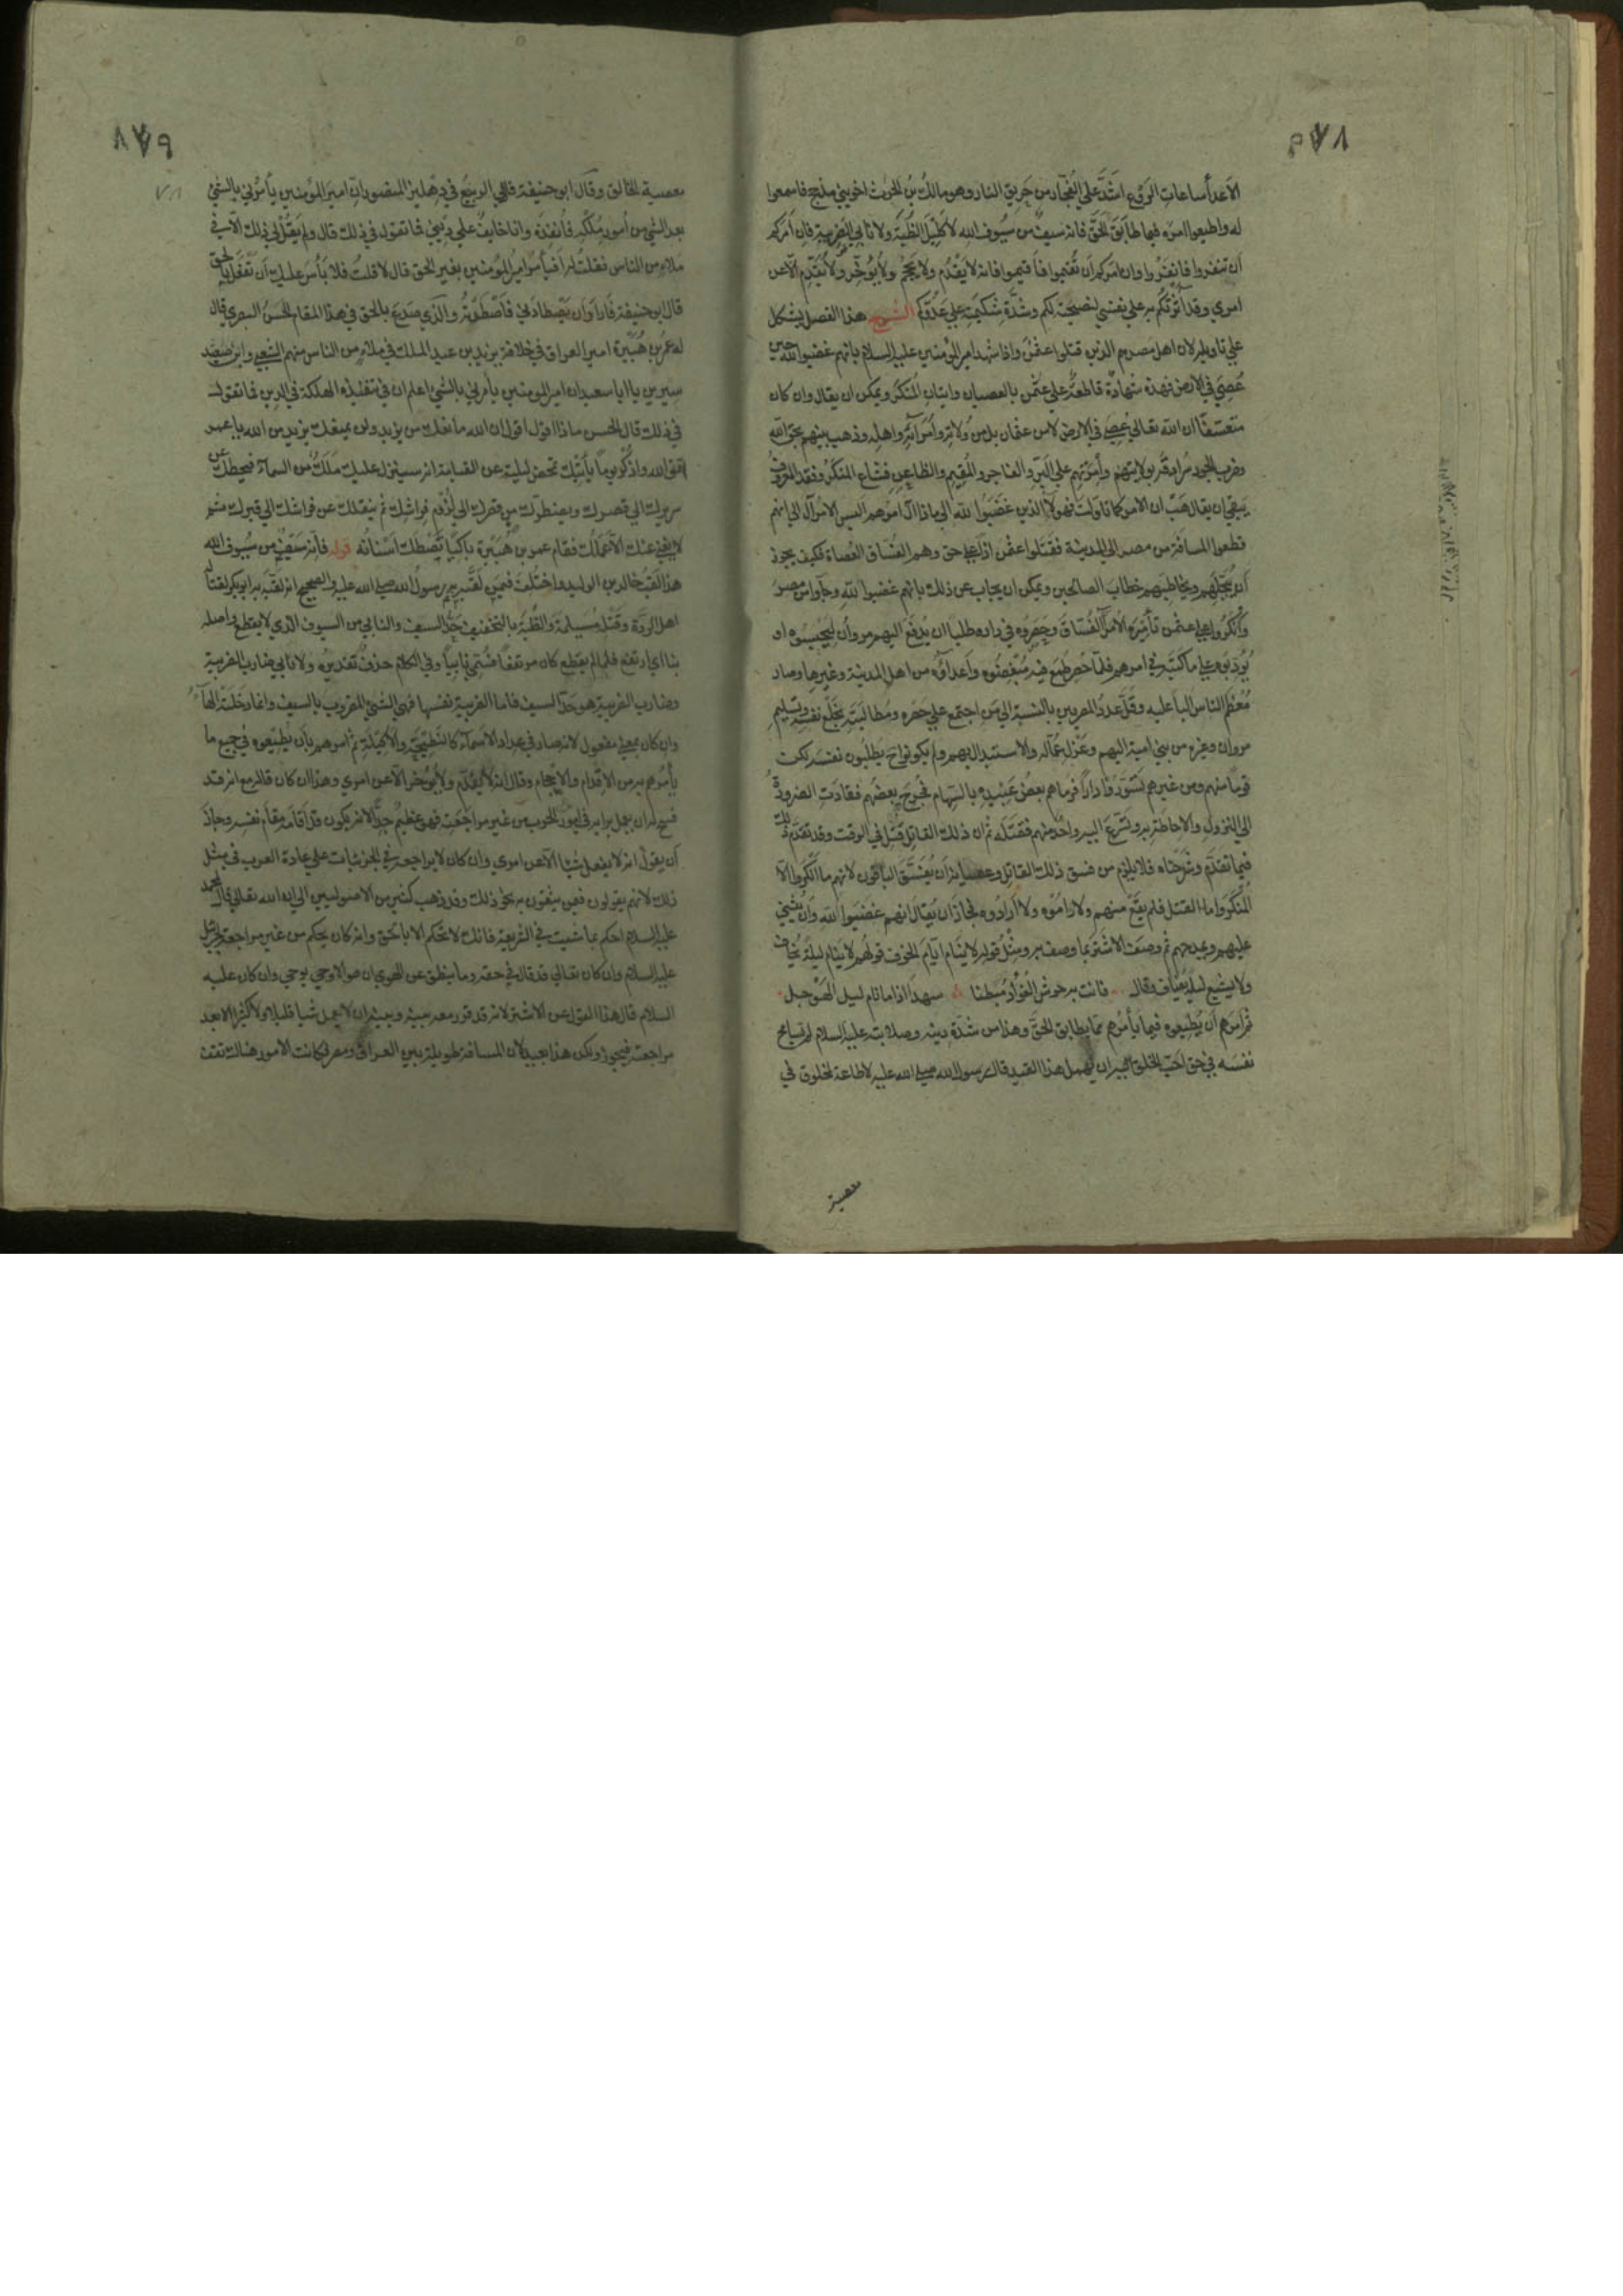 ٨٧٨
الاعدأ ساعات الروع اشدّ علي الفجّار من حريق النار وهو مالك بن الحرث اخو بني مذحج فاسمعوا
له واطيعوا امره فيما طابق الحق فانه سيف من سيوف الله لا كليل الظبة ولا نابي الضريبة فان امركم
ان تنفروا فانفروا وان امركم ان تقيموا فاقيموا فانه لا يقدم ولا يحجم ولا يؤخر ولا يقدم الا عن
امري وقد آثرتكم به علي نفسي لنصيحته لكم وشدة شكيمته علي عدوّكم الشرح هذا الفصل يشكل
علي تاويله لان اهل مصر هم الذين قتلوا عثمن واذا شهد امير المؤمنين عليه السلام بانهم غضبوا لله حين
عصي في الارض فهذه شهادة قاطعة علي عثمن بالعصيان واتيان المنكر ويمكن ان يقال وان كان
متعسفا ان الله تعالي عصي في الارض لا من عثمان بل من ولاته وامرآئه واهله وذهب بينهم بحق الله
وضرب الجور سرادقه بولايتهم وامرتهم علي البر والفاجر والمقيم والظاعن فشاع المنكر وفقد المعروف
يبقي ان يقال هب ان الامر كما تاولت فهؤلآ الذين غضبوا لله الي ماذا آل امرهم اليس الامر آل الي انهم
قطعوا المسافة من مصر الي المدينة فقتلوا عثمن
ان يبجلهم ويخاطبهم خطاب الصالحين ويمكن ان يجاب عن ذلك بانهم غضبوا لله وجآوا من مصر
وانكروا علي عثمن تأميره الامرآ الفساق وحصروه في داره طلبا ان يدفع اليهم مروان ليحبسوه او
يؤدبوه علي ما كتبه في امرهم فلما حصر طمع فيه مبغضوه واعدآؤه من اهل المدينة وغيرها وصار
معظم الناس البا عليه وقل عدد المصريين بالنسبة الي من اجتمع علي حصره ومطالبته بخلع نفسه وتسليم
مروان وغيره من بني امية اليهم وعزل عماله والاستبدال بهم ولم يكونوا ح يطلبون نفسه لكن
قوما منهم ومن غيرهم تسوروا دارا فرماهم بعض عبيده بالسهام فجرح بعضهم فقادت الضرورة
الي النزول والاحاطة به وتسرع اليه واحد منهم فقتله ثم ان ذلك القاتل قتل في الوقت وقد تقدم ذلك
فيما تقدم وشرحناه فلا يلزم من فسق ذلك القاتل وعصيانه ان يفسق الباقون لانهم ما انكروا الا
المنكر واما القتل فلم يقع منهم ولا راموه ولا ارادوه فجاز ان يقال انهم غضبوا لله وان يثني
عليهم ويمدحهم ثم وصف الاشتر بما وصف به ومثل قوله لا ينام ايام الخوف قولهم لا ينام ليلة يخاف
ولا يشبع ليلة يضاف وقال فاتت به حوش الفؤاد مبطنا سهدا اذا ما نام ليل الهوجل
ثم امرهم ان يطيعوه فيما يأمرهم مما يطابق الحق وهذا من شدة دينه وصلابته عليه السلام لم يسامح
نفسه في حق احب الخلق اليه ان يهمل هذا القيد قال رسول الله صلي الله عليه لا طاعة لمخلوق في
معصية
٨٧٩
معصية الخالق وقال ابو حنيفة قال لي الربيع في دهليز المنصور ان امير المؤمنين يأمرني بالشي
بعد الشي من أمور ملكه فانفذه وانا خايف علي ديني فما تقوله في ذلك قال ولم يقل لي ذلك الا في
ملاء من الناس فقلت له افيأمر امير المؤمنين بغير الحق قال لا قلت فلا بأس عليك ان تفعل بالحق
قال ابو حنيفة فاراد ان يصطادني فاصطدته والذي صدع بالحق في هذا المقام الحسن البصري قال
له عمر بن هبيرة امير العراق في خلافة يزيد بن عبد الملك في ملاء من الناس منهم الشعبي وابن
سيرين يا ابا سعيد ان امير المومنين يأمرني بالشي اعلم ان في تنفيذه الهلكة في الدين فما تقول
في ذلك قال الحسن ماذا اقول اقول ان الله مانعك من يزيد ولن يمنعك يزيد من الله يا عمر
اتق الله واذكر يوما يأتيك تمخض ليلته عن القيامة انه سينزل عليك ملك من السمآء فيحطك عن
سريرك الي قصرك ويضطرك من قصرك الي لزوم فراشك ثم ينقلك عن فراشك الي قبرك ثم
لا يغني عنك الا عملك فقام عمر بن هبيرة باكيا تصطك اسنانه قوله فانه سيف من سيوف الله
هذا لقب خالد بن الوليد واختلف فيمن لقبه به رسول الله صلي الله عليه والصحيح انه لقبه به ابو بكر لقتاله
اهل الردة وقتله مسيلمة والظبة بالتخفيف حد السيف والنابي من السيوف الذي لا يقطع واصله
نبا اي ارتفع فلما لم يقطع كان مرتفعا فسمي نابيا وفي الكلام حذف تقديره ولا نابي ضارب الضريبة
وضارب الضريبة هو حد السيف فاما الضريبة نفسها فهي الشي المضروب بالسيف وانما دخلته الهآء
وان كان بمعني مفعول لانه صار في عداد الاسمآء كالنطيحة والاكيلة ثم امرهم بأن يطيعوه في جميع ما
يأمرهم به من الاقدام والاحجام وقال انه لا يقدم ولا يؤخر الا عن امري وهذا ان كان قاله مع انه قد
سنح له ان يعمل برايه في امور الحرب من غير مراجعته فهو عظيم جدا لانه يكون قد اقامه مقام نفسه وجاز
ان يقول انه لا يفعل شيا الا عن امري وان كان لا يراجعه في الجزئيات علي عادة العرب في مثل
ذلك لانهم يقولون فيمن يثقون به نحو ذلك وقد ذهب كثير من الاصوليين الي ان الله تعالي قال لمحمد
عليه السلام احكم بما شيت في الشريعة فانك لا تحكم الا بالحق وانه كان يحكم من غير مراجعة لجبرئيل
عليه السلام وان كان تعالي قد قال في حقه وما ينطق عن الهوي ان هو الا وحي يوحي وان كان عليه
السلام قال هذا القول عن الاشتر لانه قد قرر معه بينه وبينه ان لا يعمل شيا قليلا ولا كثيرا الا بعد
مراجعته فيجوز ولكن هذا بعيد لان المسافة طويلة بين العراق ومصر وكانت الامور هنالك تقف